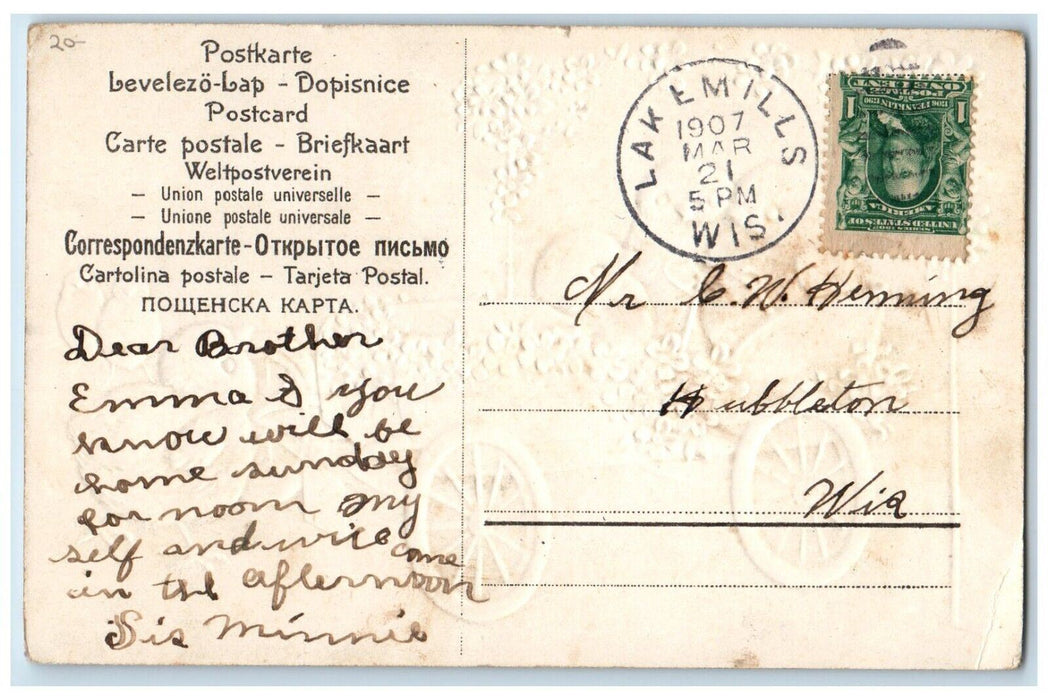 20-
Postkarte
Levelezö-Lap - Dopisnice
Postcard
Carte postale - Briefkaart
Weltpostverein
- Union postale universelle -
- Unione postale universale -
Correspondenzkarte-Открытое письмо
Cartolina postale - Tarjeta Postal.
ПОЩЕНСКА КАРТА.
Dear Brother
Emma & you
know will be
home sunday
for noon my
self and will come
in the afternoon
Sis Minnie
LAKE MILLS
1907
MAR
21
5 PM
WIS.
SERIES 1902
UNITED STATES OF
AMERICA
1706 FRANKLIN 1790
POSTAGE
ONE CENT
1 1
Mr C. W. Heming
Hubbleton
Wis